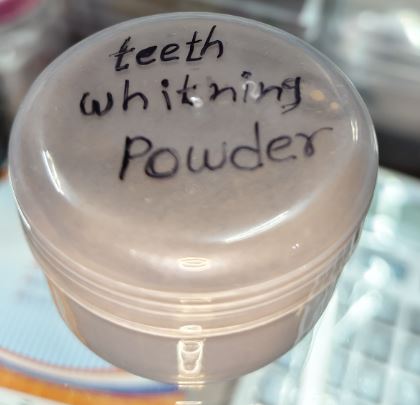 teeth
whitning
Powder